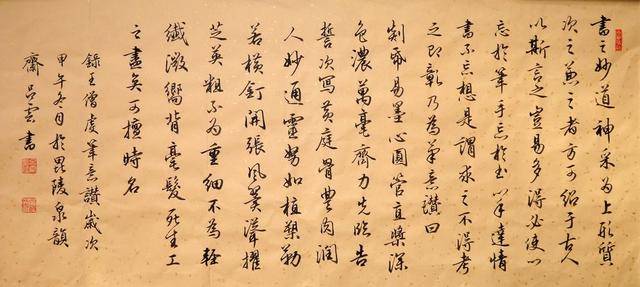 書之妙道神采為上形質
次之兼之者方可紹于古人
以斯言之豈易多得必使心
忘於筆手忘於书心手達情
書不忘想是謂求之不得考
之即彰乃為筆意讚曰
剡帋易墨心圓管直漿深
色濃萬毫齊力先臨告
誓次寫黃庭骨豐肉潤
入妙通靈努如植槊勒
若橫釘開張鳳翼聳擢
芝英粗不為重細不為輕
纖微嚮背毫髮死生工
之盡矣可擅時名
錄王僧虔筆意讚歲次
甲午冬月於毘陵泉韻
齋雲書